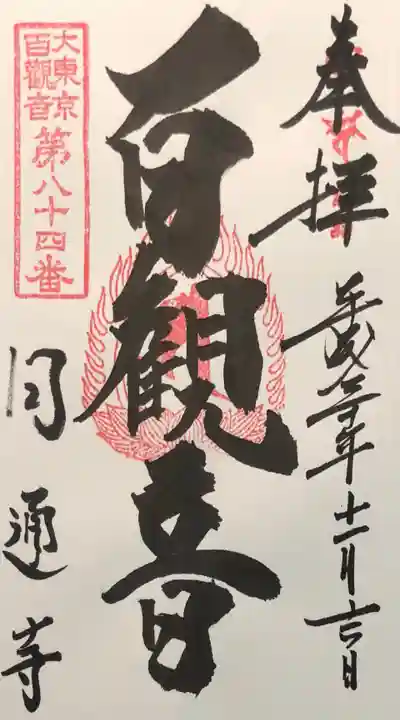 奉拝
平成三十年十一月六日
百觀音
大東京
百觀音
第八十四番
円通寺